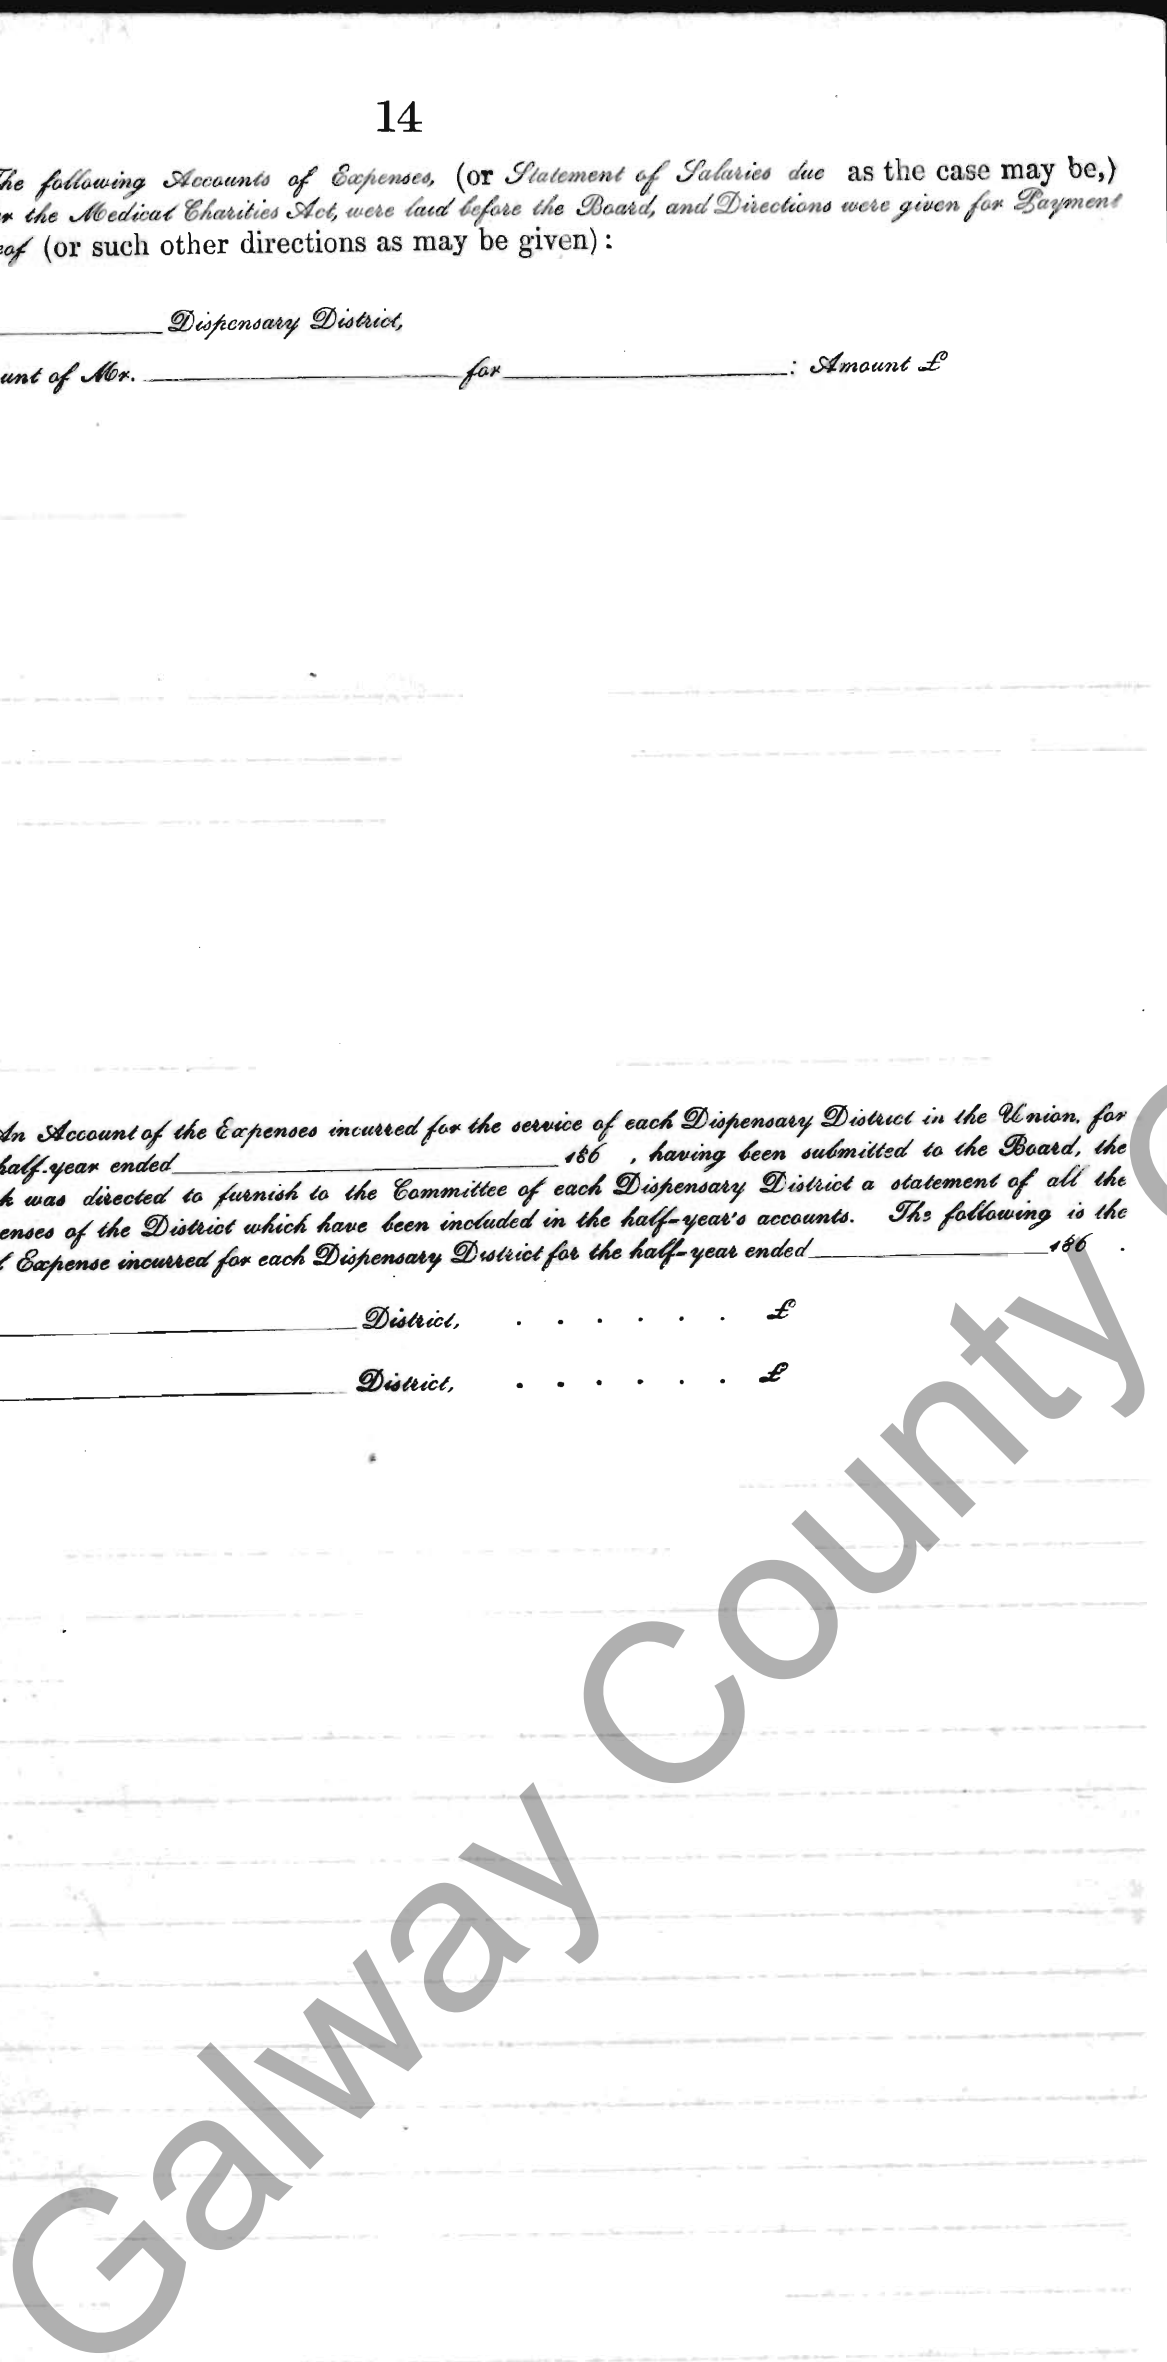 14
The following Accounts of Expenses, (or Statement of Salaries due as the case may be,)
r the Medical Charities Act, were laid before the Board, and Directions were given for Payment
eof (or such other directions as may be given):
Dispensary District,
unt of Mr. for : Amount £
An Account of the Expenses incurred for the service of each Dispensary District in the Union, for
half-year ended 186 , having been submitted to the Board, the
k was directed to furnish to the Committee of each Dispensary District a statement of all the
enses of the District which have been included in the half-year's accounts. The following is the
l Expense incurred for each Dispensary District for the half-year ended 186 .
District, . . . . . . £
District, . . . . . . £
Galway County